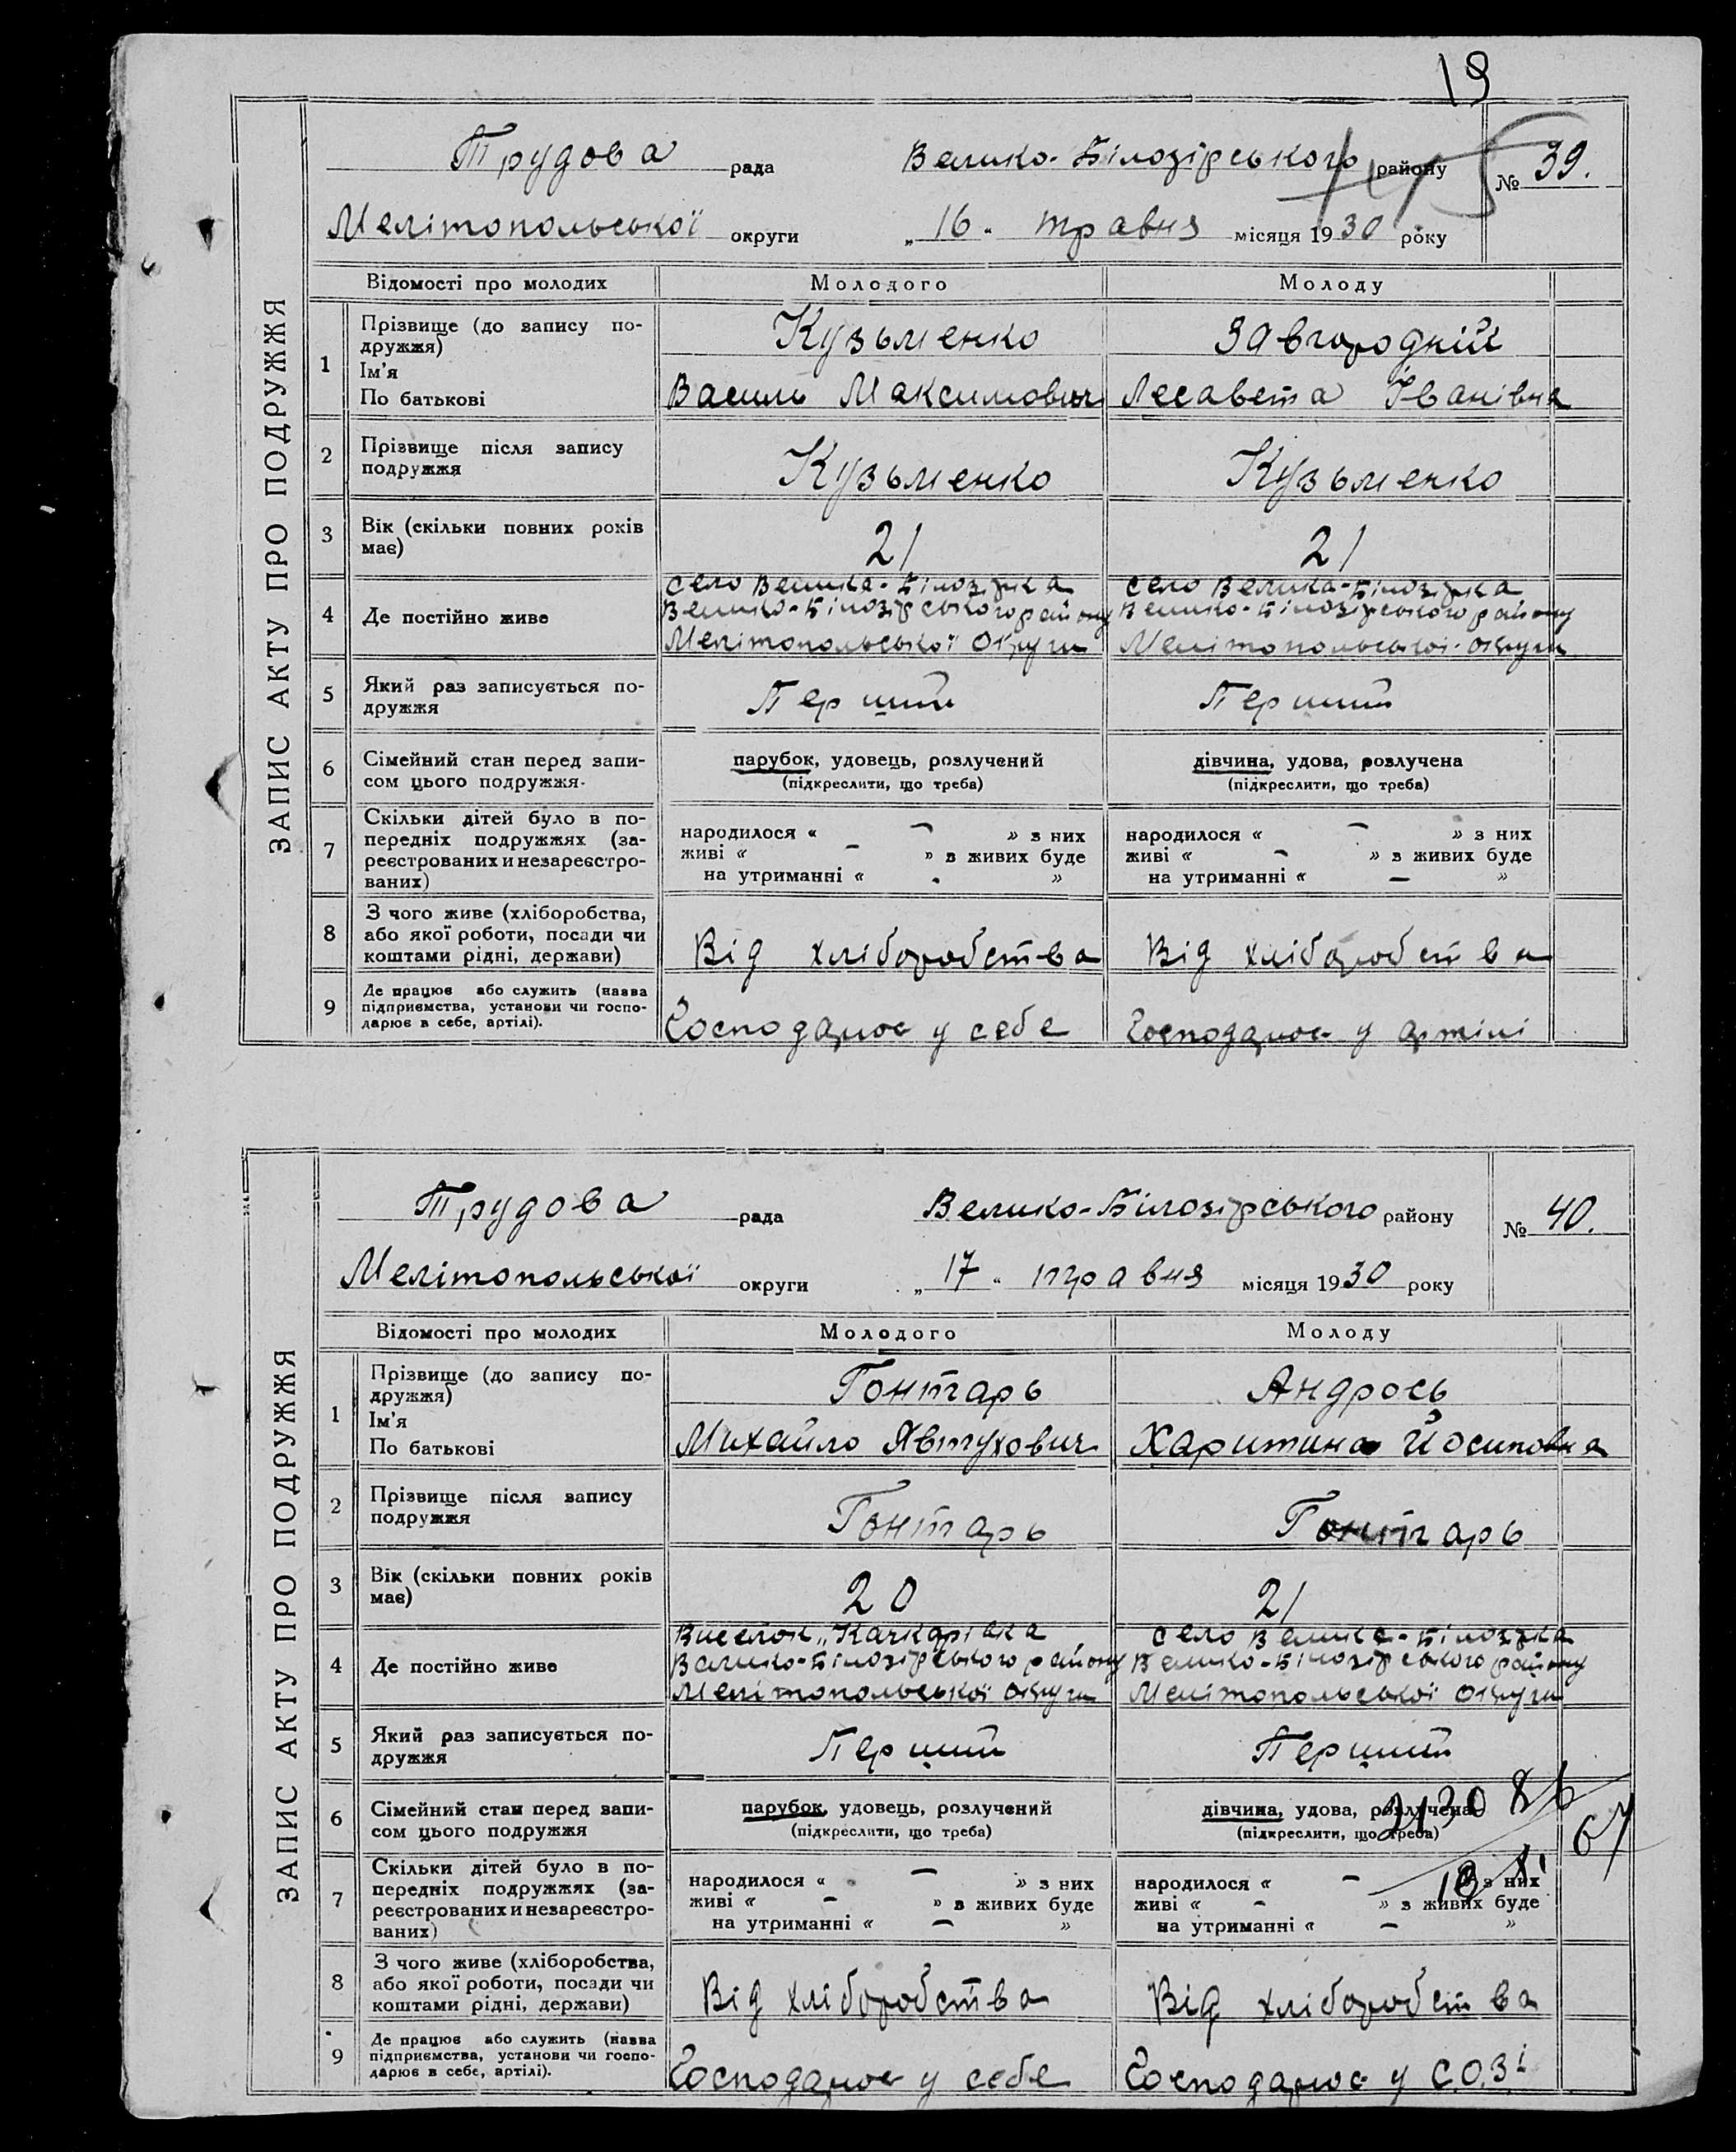 19
Трудова рада Велико-Білозірського району № 39.
Мелітопольської округи „16" травня місяця 1930 року
ЗАПИС АКТУ ПРО ПОДРУЖЖЯ
Відомості про молодих Молодого Молоду
1 Прізвище (до запису по-
дружжя) Кузьменко Завгородній
Ім'я
По батькові Василь Максимович Лесавета Іванівна
2 Прізвище після запису
подружжя Кузьменко Кузьменко
3 Вік (скільки повних років
має) 21 21
село Велика-Білозірка село Велика-Білозірка
4 Де постійно живе Велико-Білозірського району Велико-Білозірського району
Мелітопольської Округи Мелітопольської округи
5 Який раз записується по-
дружжя Перший Перший
6 Сімейний стан перед запи-
сом цього подружжя. парубок, удовець, розлучений дівчина, удова, розлучена
(підкреслити, що треба) (підкреслити, що треба)
7 Скільки дітей було в по-
передніх подружжях (за-
реєстрованих и незареєстро-
ваних)
народилося « — » з них народилося « — » з них
живі « — » з живих буде живі « — » з живих буде
на утриманні « - » на утриманні « — »
8 З чого живе (хліборобства,
або якої роботи, посади чи
коштами рідні, держави) Від хліборобства Від хліборобства
9 Де працює або служить (назва
підприємства, установи чи госпо-
дарює в себе, артілі). Господарює у себе Господарює у артілі
Трудова рада Велико-Білозірського району № 40.
Мелітопольської округи „17" травня місяця 1930 року
ЗАПИС АКТУ ПРО ПОДРУЖЖЯ
Відомості про молодих Молодого Молоду
1 Прізвище (до запису по-
дружжя) Гонтарь Андрось
Ім'я
По батькові Михайло Явтухович Харитина Йосиповна
2 Прізвище після запису
подружжя Гонтарь Гонтарь
3 Вік (скільки повних років
має) 20 21
Виселок „Качкарівка село Велика-Білозірка
4 Де постійно живе Велико-Білозірського району Велико-Білозірського району
Мелітопольської округи Мелітопольської округи
5 Який раз записується по-
дружжя Перший Перший
6 Сімейний стан перед запи-
сом цього подружжя парубок, удовець, розлучений дівчина, удова, розлучена
(підкреслити, що треба) (підкреслити, що треба)
67
7 Скільки дітей було в по-
передніх подружжях (за-
реєстрованих и незареєстро-
ваних)
народилося « — » з них народилося « — » з них
живі « — » з живих буде живі « — » з живих буде
на утриманні « — » на утриманні « — »
8 З чого живе (хліборобства,
або якої роботи, посади чи
коштами рідні, держави) Від хліборобства Від хліборобства
9 Де працює або служить (назва
підприємства, установи чи госпо-
дарює в себе, артілі). Господарює у себе Господарює у С.О.З'і